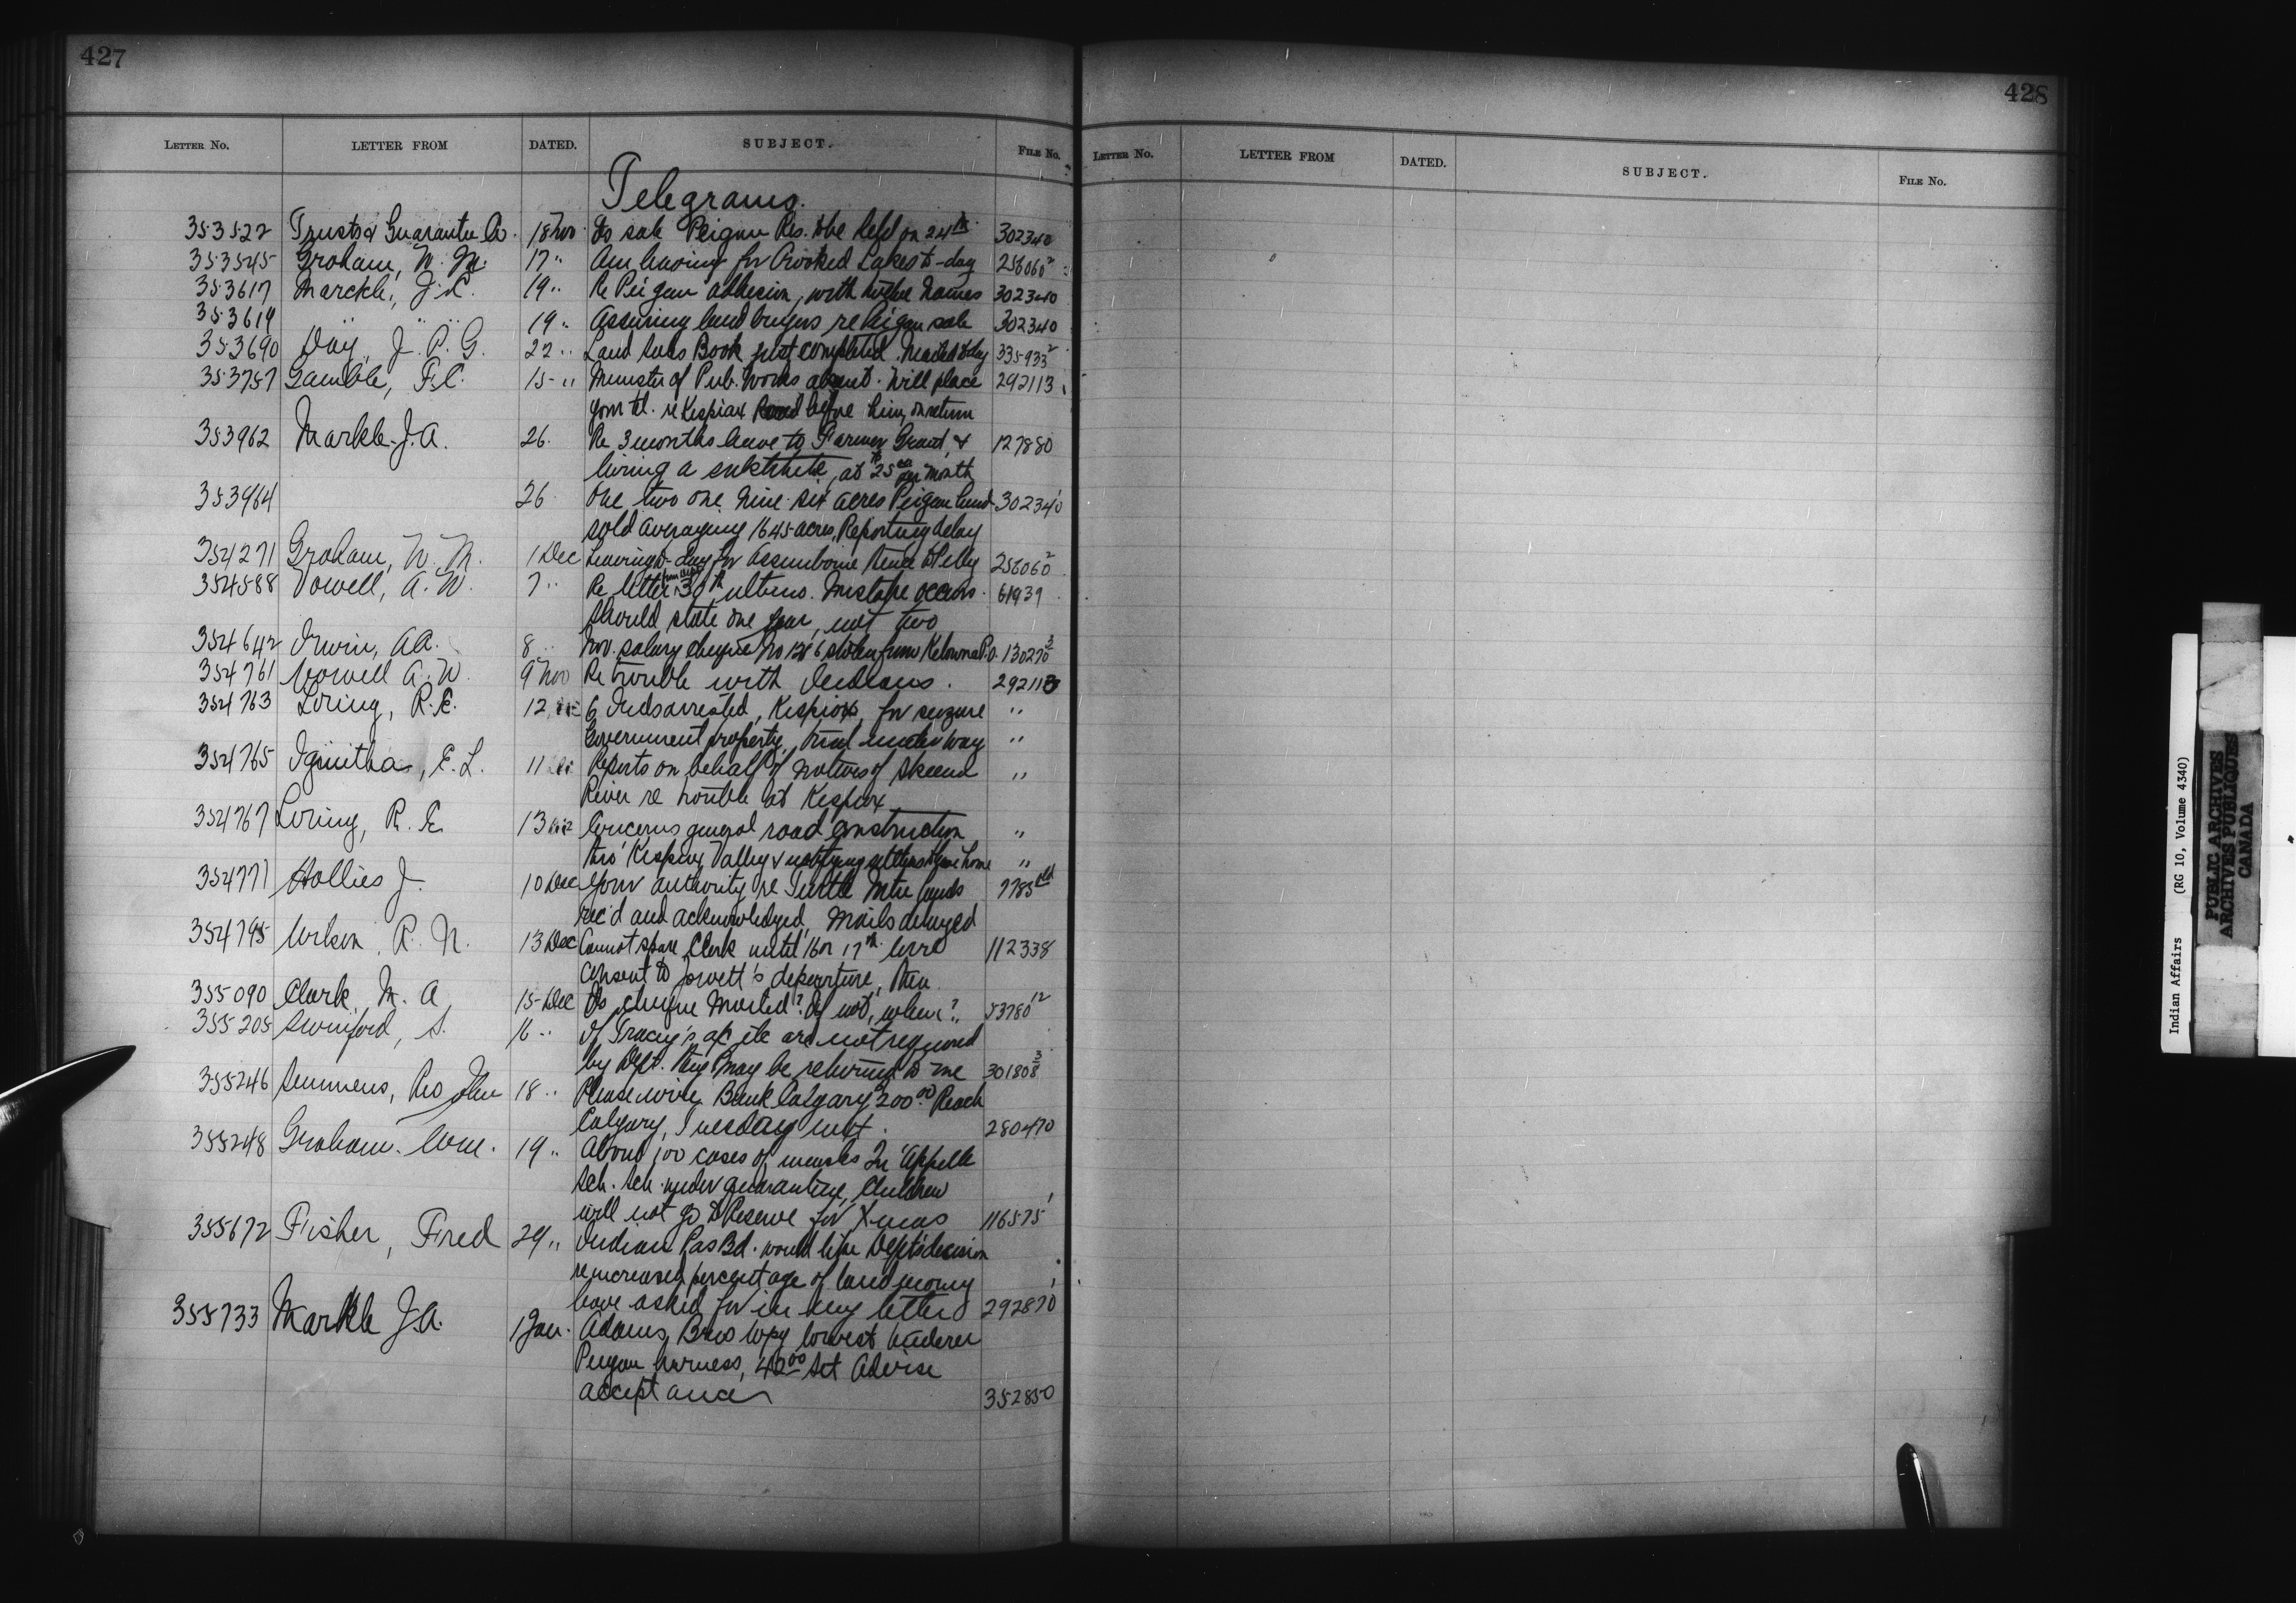 427
LETTER NO. LETTER FROM DATED. SUBJECT. FILE NO.
Telegrams.
353522 Trusts & Guarantee Co. 18 Nov. Is sale Peigan Res. to be held on 24th 302340
353545 Graham, W. M. 17 " Am leaving for Crooked Lakes to-day 256060²
353617 Marckle, J. 19 " Re Peigan adhesion, with twelve names 302340
353619 " " " 19 " Assuring land buyers re Peigan sale 302340
353690 Day, J. P. G. 22 " Land Sales Book just completed. Mailed to-day 335933²
353757 Gamble, F. C. 15 " Minister of Pub. Works absent. Will place 292113
your tel. re Kispiax Road before him on return
353962 Markle J. A. 26. Re 3 months leave to Farmer Grant, &
hiring a substitute, at 25 per month 127880
353964 26 One two one nine six acres Peigan land 302340
sold averaging 1645 acres, Reporting delay
354271 Graham, W. M. 1 Dec Leaving to-day for Assiniboine thence to Pelly 256060²
354588 Vowell, A. W. 7 " Re letter from Dept 30th ultimo. Mistake occurs. 61939
Should state one year, not two
354642 Irwin, A. 8 " Nov. salary cheque No 1216 stolen from Kelowna P.O. 130270³
354761 Vowell A. W. 9 Nov Re trouble with Indians. 292113
354763 Loring, R. E. 12 Dec 6 Inds arrested, Kispiox, for seizure "
Government property, trial under way "
354765 E. L. 11 Reports on behalf of natives of Skeena "
River re trouble at Kispiox
354767 Loring, R. E. 13 Concerns general road construction "
thro' Kispiox Valley & notifying settlers home "
354771 Hollies J. 10 Dec Your authority re Turtle Mtn funds 7785
rec'd and acknowledged, Mails delayed
354795 Wilson, R. N. 13 Dec Cannot spare Clerk until 16 or 17th. Will 112338
consent to Jowett's departure, then.
355090 Clark, M. A. 15 Dec Is cheque Mailed? If not, when? 53780¹²
355205 Swinford, S. 16 " If Tracey's a/c etc are not required
by Dept. they may be returned to me 301808³
355246 Semmens, Rev John 18 " Please wire Bank Calgary 200.00 Reach
Calgary, Tuesday next. 280470
355248 Graham. Wm. 19 " About 100 cases of measles Qu'Appelle
Sch. Sch. under quarantine, Children
will not go to Reserve for X-mas 116575¹
355672 Fisher, Fred 29 " Indian Bd. would like Dept's decision
re increased percentage of land money
have asked for in my letter 292870
355733 Markle J. A. 1 Jan. Adams Bros Copy lowest tenderer
Peigan harness, 42.00 Set Advise
acceptance 352850
428
LETTER NO. LETTER FROM DATED. SUBJECT. FILE NO.
Indian Affairs (RG 10, Volume 4340)
PUBLIC ARCHIVES
ARCHIVES PUBLIQUES
CANADA